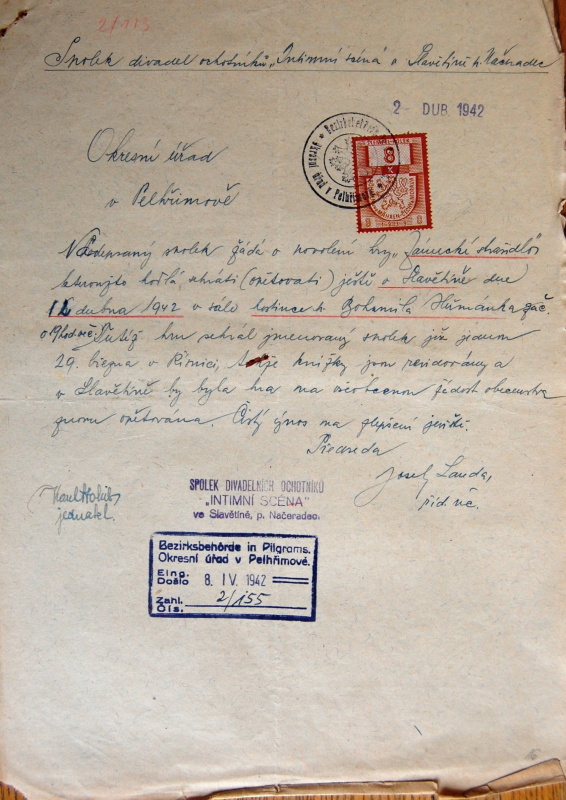 2/113
Spolek divadel. ochotníků „Intimní scéna" v Slavětíně p. Načeradec
2- DUB. 1942
Okresní úřad
v Pelhřimově
8
K
8 8
spolek žádá o povolení hry „Zámecké strašidlo"
(opětovati) ještě v Slavětíně dne
12 dubna 1942 v sále hostince p. Bohumila zač.
o 19 hod. več. Tutéž hru sehrál jmenovaný spolek již jednou
29. března v knížky jsou revidovány a
v Slavětíně by byla hra na všeobecnou žádost obecenstva
znovu opětována. Čistý výnos na zlepšení jeviště.
Předseda
Josef Landa,
říd. uč.
Karel Holub,
jednatel.
SPOLEK DIVADELNÍCH OCHOTNÍKŮ
„INTIMNÍ SCÉNA"
ve Slavětíně, p. Načeradec.
Bezirksbehörde in Pilgrams.
Okresní úřad v Pelhřimově.
Eing.
Došlo 8. IV. 1942
Zahl. 2/155
Čís.
16